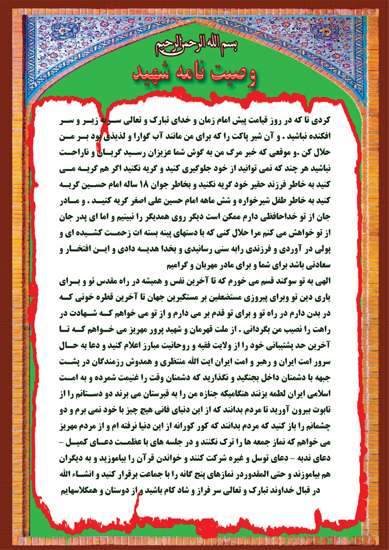 بسم الله الرحمن الرحیم
وصیت نامه شهید
کردی تا که در روز قیامت پیش امام زمان و خدای تبارک و تعالی سربه زیر و سر
افکنده نباشید . و آن شیر پاکت را که برای من مانند آب گوارا و لذیذی بود بر من
حلال کن .و موقعی که خبر مرگ من به گوش شما عزیزان رسید گریان و ناراحت
نباشید هر چند که نمی توانید از خود جلوگیری کنید و گریه نکنید اگر هم گریه می
کنید به خاطر فرزند حقیر خود گریه نکنید و بخاطر جوان ۱۸ ساله امام حسین گریه
کنید به خاطر طفل شیرخواره و شش ماهه امام حسین علی اصغر گریه کنید . و مادر
جان از تو خداحافظی دارم ممکن است دیگر روی همدیگر را نبینیم و اما ای پدر جان
از تو خواهش می کنم مرا حلال کنی که با دستهای پینه بسته ات زحمت کشیده ای و
پولی در آوردی و فرزندی رابه سنی رسانیدی و بخدا هدیه دادی و این افتخار و
سعادتی باشد برای شما و برای مادر مهربان و گرامیم
الهی به تو سوکند قسم می خورم که تا آخرین نفس و همیشه در راه مقدس تو و برای
یاری دین تو وبرای پیروزی مستضعفین بر مستکبرین جهان تا آخرین قطره خونی که
در بدن دارم در راه تو و برای تو قدم بر می دارم و از تو می خواهم که شهادت در
راهت را نصیب من بگردانی . از ملت قهرمان و شهید پرور مهریز می خواهم که تا
آخرین حد پشتیبانی خود را از ولایت فقیه و روحانیت مبارز اعلام کنید و دعا به حال
سرور امت ایران و رهبر و امت ایران آیت الله منتظری و همدوش رزمندگان در پشت
جبهه با دشمنان داخل بجنگید و نگذارید که دشمنان وقت را غنیمت شمرده و به امت
اسلامی ایران لطمه بزنند هنگامیکه جنازه من را به قبرستان می برند دو دستانم را از
تابوت بیرون آورید تا مردم بدانند که از این دنیای فانی هیچ چیز با خود نمی برم و دو
چشمانم را باز کنید که مردم بدانند که کور کورانه از این دنیا نرفته ام و از مردم مهریز
می خواهم که نماز جمعه ها را ترک نکنند و در جلسه های با عظمت دعای کمیل –
دعای ندبه – دعای توسل و غیره شرکت کنند و خواندن قرآن را بیاموزید و به دیگران
هم بیاموزند و حتی المقدوردر نمازهای پنج گانه را با جماعت برقرار کنید و انشاء الله
در قبال خداوند تبارک و تعالی سر فراز و شاد کام باشید و از دوستان و همکلاسهایم